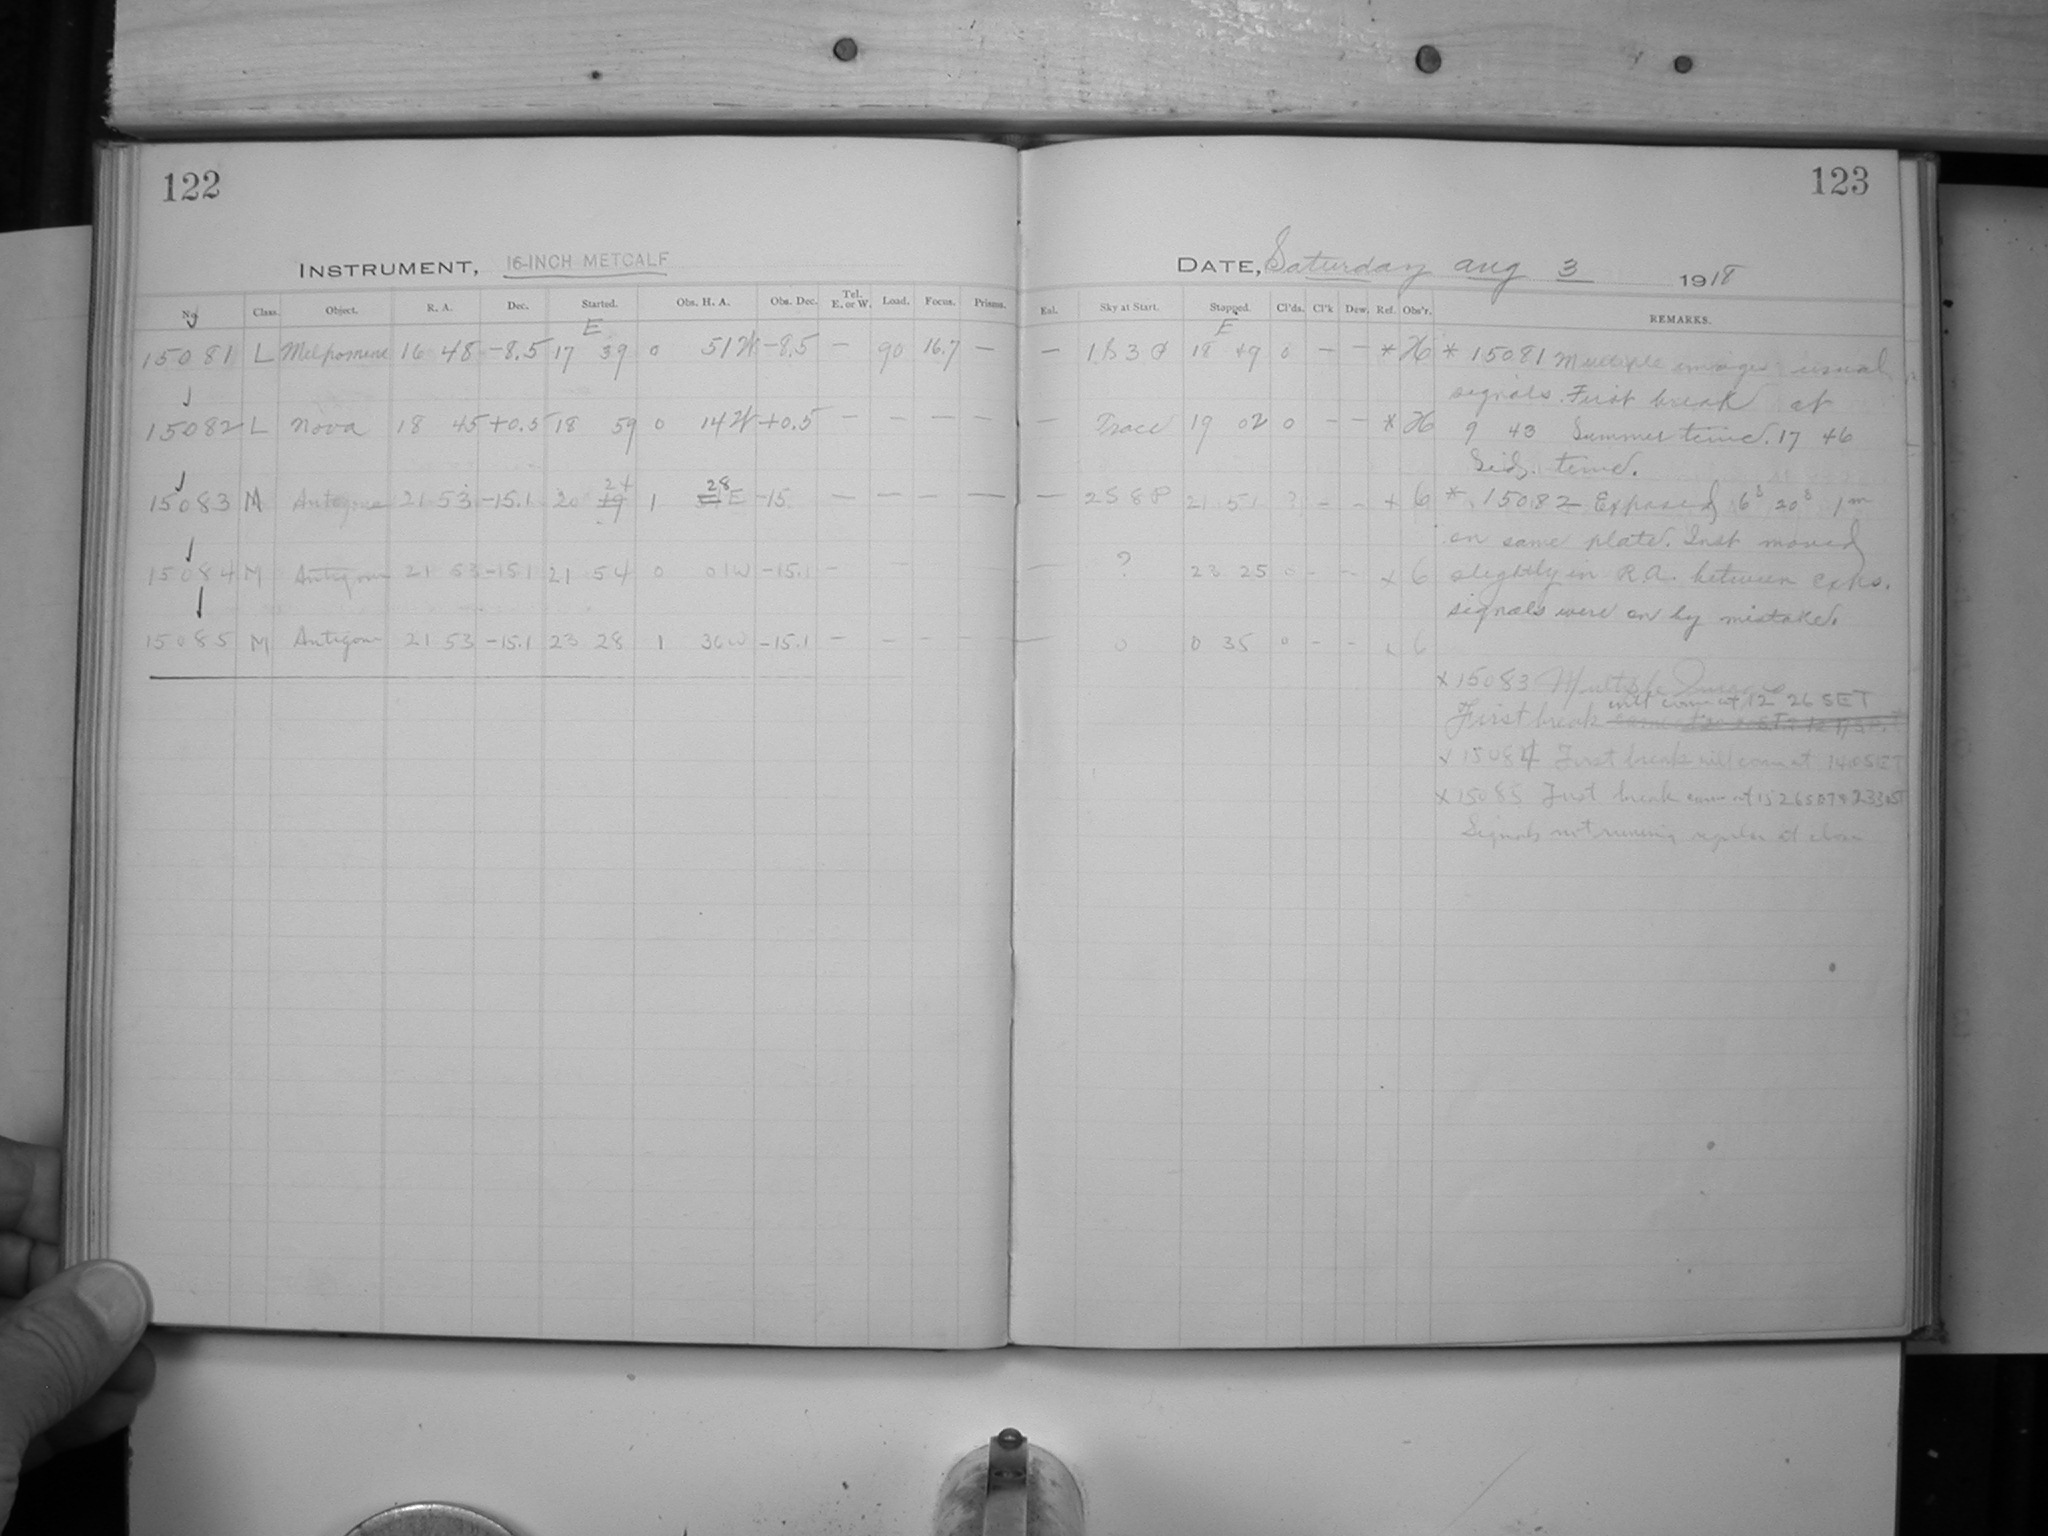 122
INSTRUMENT, 16-INCH METCALF
No. Class. Object. R. A. Dec. Started. Obs. H. A. Obs. Dec. Tel. E. or W. Load. Focus. Prisms.
E
15081 L Melpomene 16 48 -8.5 17 39 0 51 W -8.5 — 90 16.7 —
15082 L Nova 18 45 +0.5 18 59 0 14 W +0.5 — — — —
24 28
15083 M Antigone 21 53 -15.1 20 49 1 E -15 — — — —
15084 M Antigone 21 53 -15.1 21 54 0 01 W -15.1 — — — —
15085 M Antigone 21 53 -15.1 23 28 1 36 W -15.1 — — — —
123
DATE, Saturday Aug 3 1918
Eal. Sky at Start. Stopped. Cl'ds. Cl'k Dew. Ref. Obs'r. REMARKS.
E
— 18 49 0 — — * H * 15081 Multiple images usual
signals. First break at
— Trace 19 02 0 — — * H 9 43 Summer time. 17 46
Sid. time.
— 2S 8P 21 51 ? — — x 6 * 15082 Exposed 6s 20s 1m
on same plate. Inst moved
— ? 23 25 0 — — x 6 slightly in R.A. between exps.
signals were on by mistake.
0 0 35 0 — — x 6
x 15083 Multiple Images
will come at 12 26 SET
First break
x 15084 First break will come at 140 SET
x 15085 First break come at
Signals not running regular at close